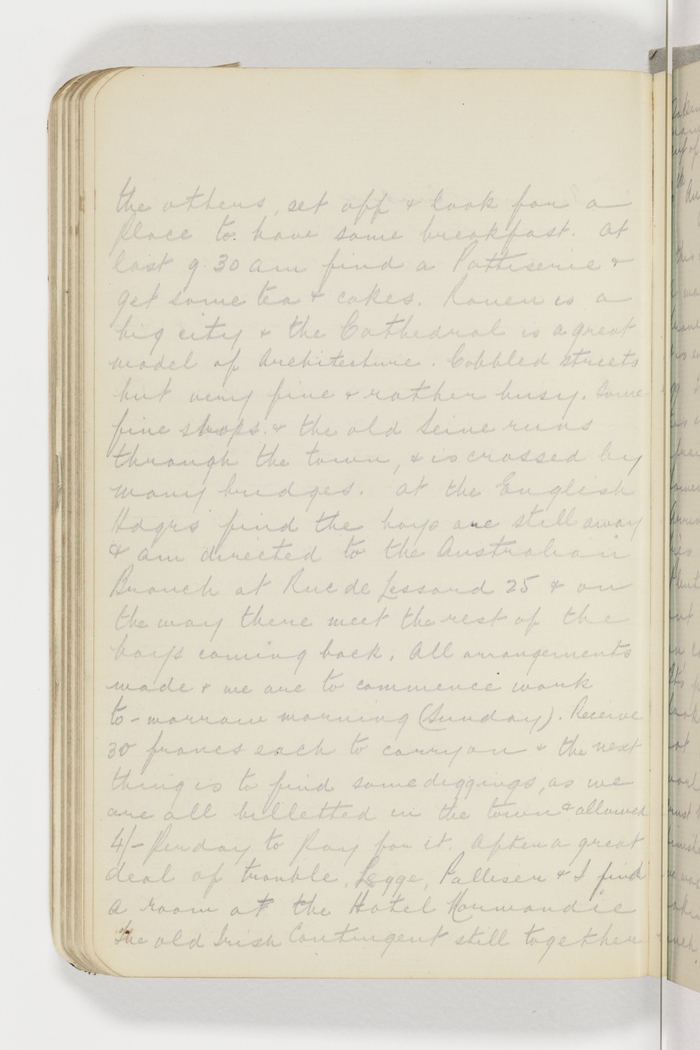 the others, set off & look for a
place to have some breakfast. At
last 9.30 am find a Pattiserie &
get some tea & cakes. Rouen is a
big city & the Cathedral is a great
model of Architecture. Cobbled streets
but very fine & rather busy. Some
fine shops. & the old Seine runs
through the town, & is crossed by
many bridges. At the English
Hdqrs find the boys are still away
& am directed to the Australian
Branch at Rue de Lessard 25 & on
the way there meet the rest of the
boys coming back. All arrangements
made & we are to commence work
to-morrow morning (Sunday). Receive
30 francs each to carry on & the next
thing is to find some diggings, as we
are all billetted in the town & allowed
4/- Per day to Pay for it. After a great
deal of trouble, Legge, Palliser & I find
a room at the Hotel Normandie
The old Irish Contingent still together